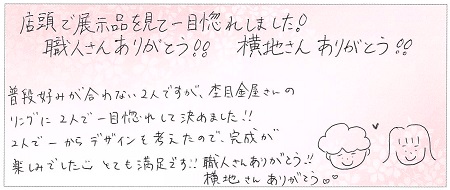 店頭で展示品を見て一目惚れしました!
職人さんありがとう!! 横地さんありがとう!!
普段好みが合わない2人ですが、杢目金屋さんの
リングに2人で一目惚れして決めました!!
2人で一からデザインも考えたので、完成が
楽しみでした とても満足です!! 職人さんありがとう!!
横地さんありがとう